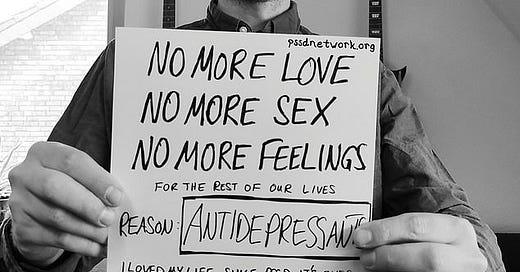 pssdnetwork.org
NO MORE LOVE
NO MORE SEX
NO MORE FEELINGS
FOR THE REST OF OUR LIVES
REASON: ANTIDEPRESSANTS
I LOVED MY LIFE SINCE